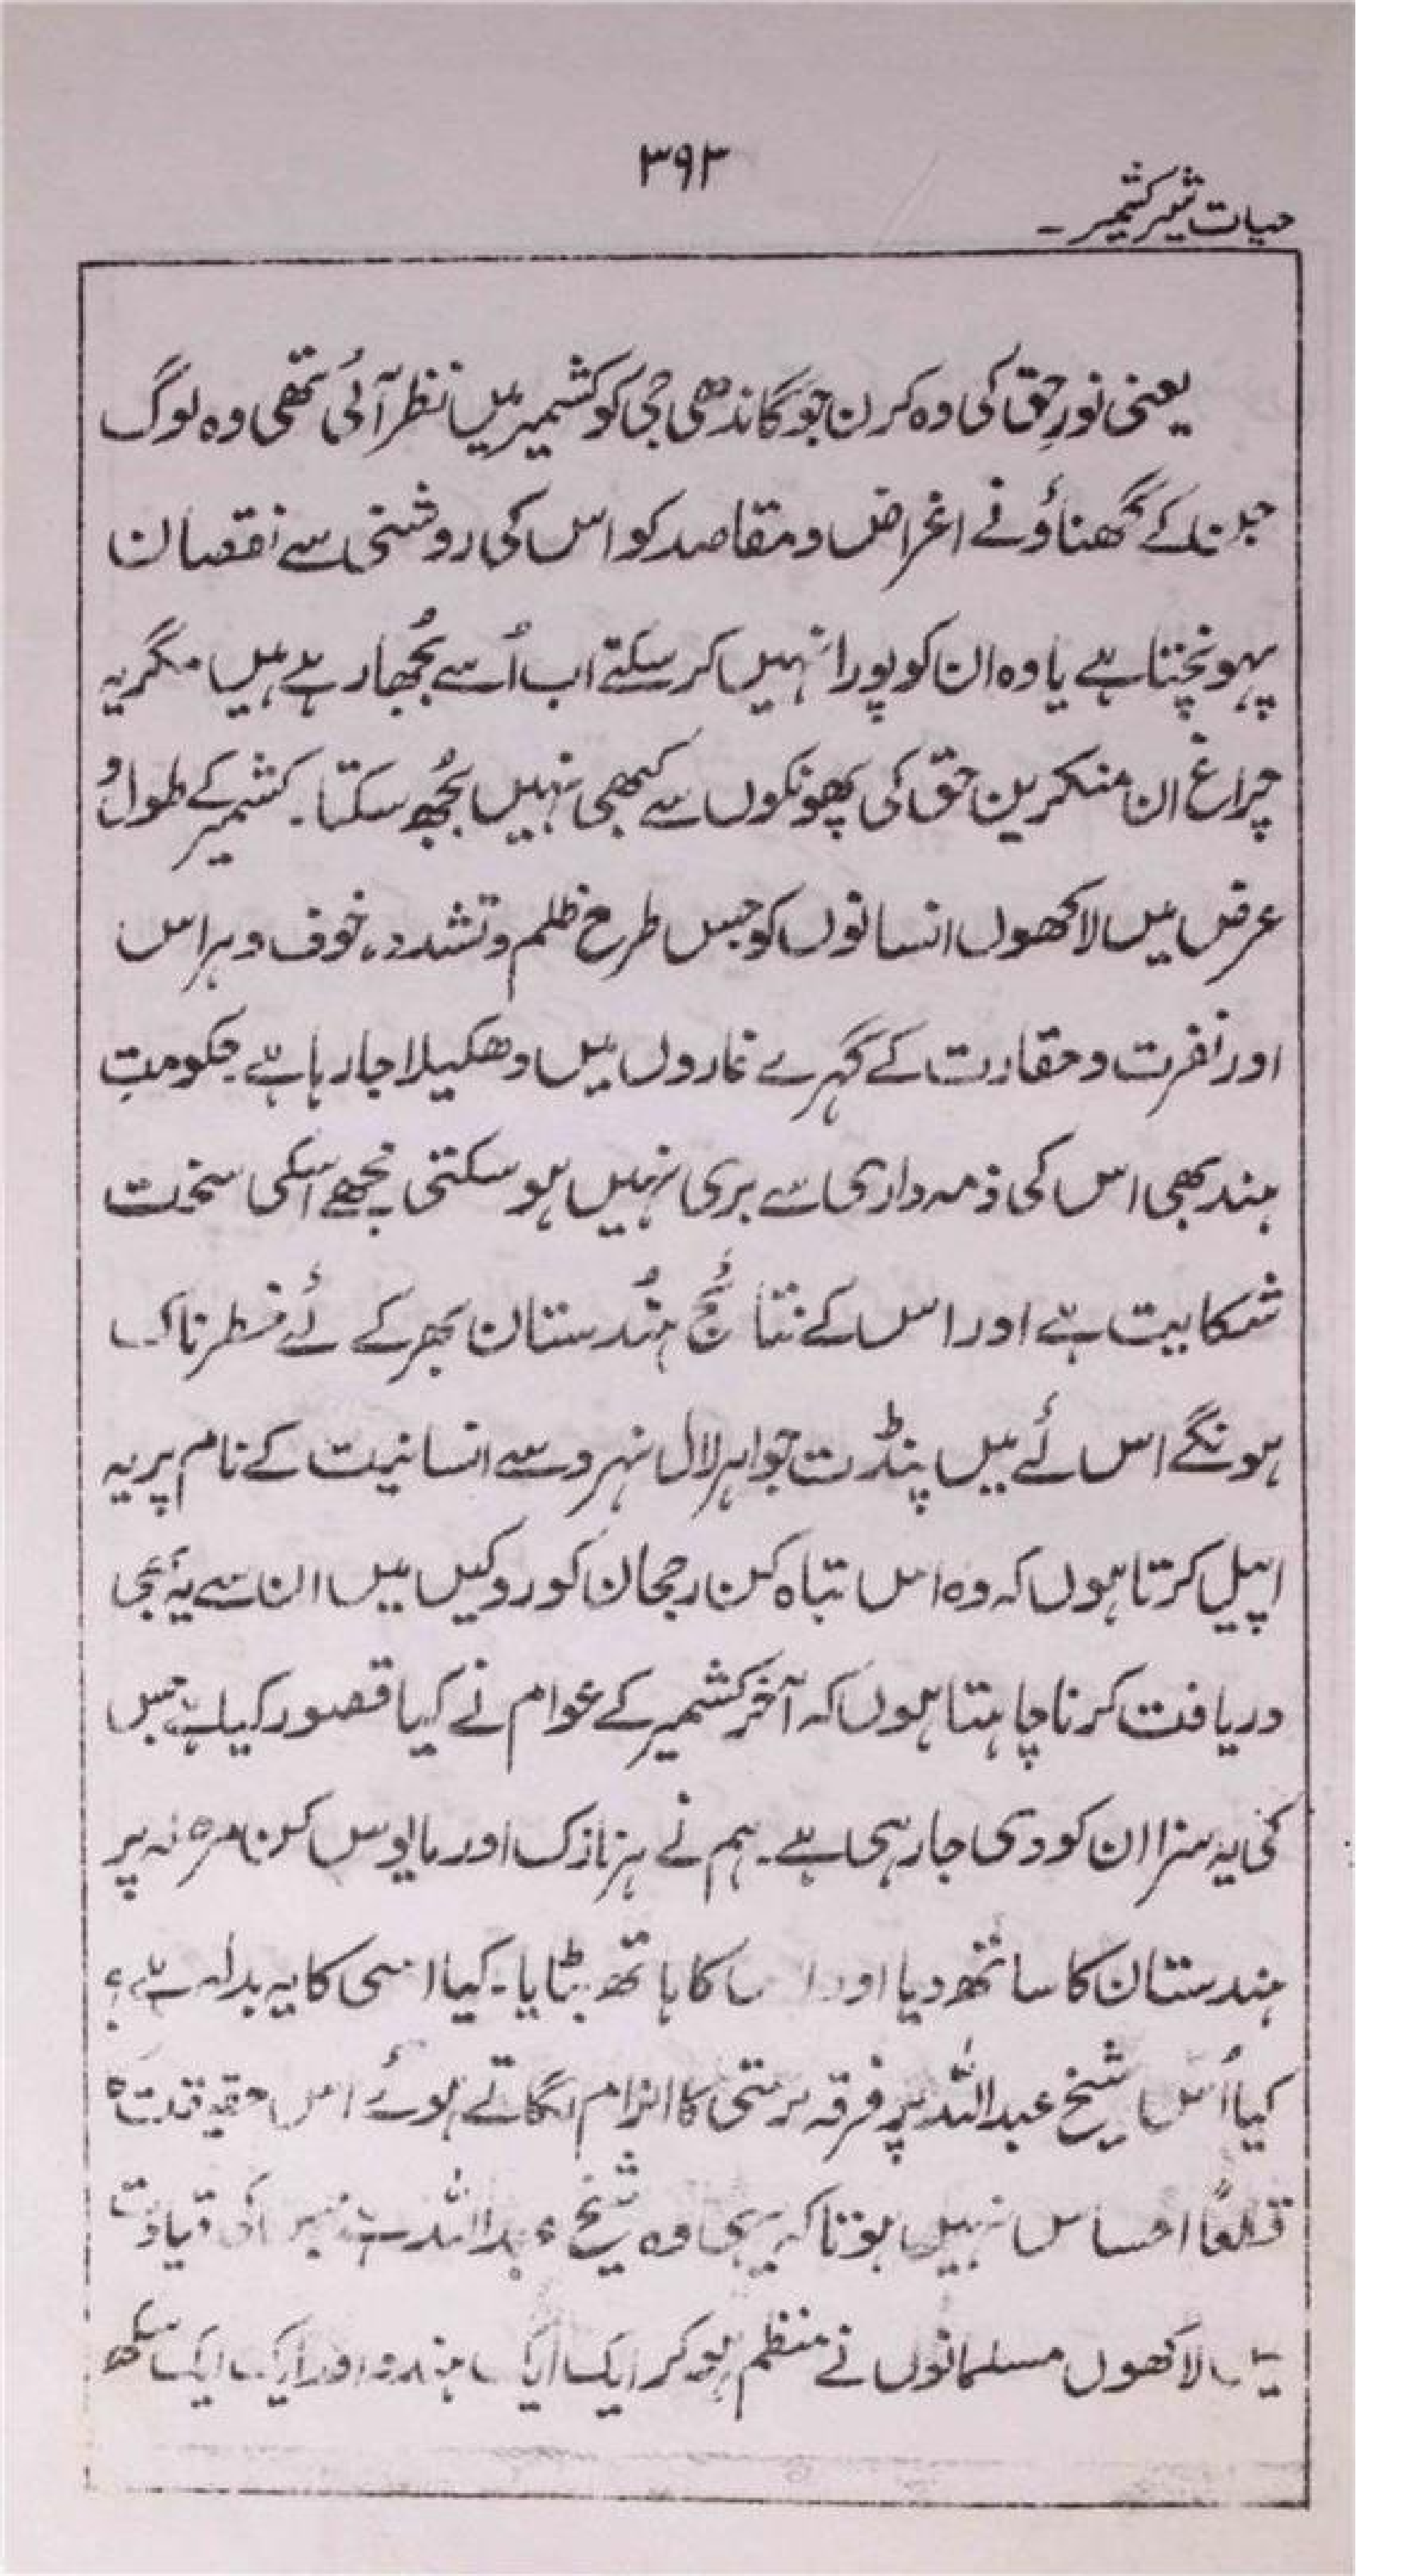 ۳۹۳
حیات شیر کشمیر ۔
یعنی نورِ حق کی وہ کرن جو گاندھی جی کو کشمیر میں نظر آئی تھی وہ لوگ
جن کے گھناؤنے اغراض و مقاصد کو اس کی روشنی سے نقصان
پہونچتا ہے یا وہ ان کو پورا نہیں کر سکتے اب اُسے بُجھا رہے ہیں مگر یہ
چراغ ان منکرین حق کی پھونکوں سے کبھی نہیں بُجھ سکتا۔ کشمیر کے طول و
عرض میں لاکھوں انسانوں کو جس طرح ظلم و تشدد، خوف و ہراس
اور نفرت و حقارت کے گہرے غاروں میں دھکیلا جا رہا ہے۔ حکومتِ
ہند بھی اس کی ذمہ داری سے بری نہیں ہو سکتی مجھے اسکی سخت
شکایت ہے اور اس کے نتائج ہندستان بھر کے لئے خطرناک
ہونگے اس لئے میں پنڈت جواہر لال نہرو سے انسانیت کے نام پر یہ
اپیل کرتا ہوں کہ وہ اس تباہ کن رجحان کو روکیں میں ان سے یہ بھی
دریافت کرنا چاہتا ہوں کہ آخر کشمیر کے عوام نے کیا قصور کیا ہے جس
کی یہ سزا ان کو دی جا رہی ہے۔ ہم نے ہر نازک اور مایوس کن پر
ہندستان کا ساتھ دیا اور اس کا ہاتھ بٹایا۔ کیا اسی کا یہ بدلہ ہے؟
کیا شیخ عبداللہ پر فرقہ پرستی کا الزام لگاتے ہوئے اس حقیقت کا
قطعاً احساس نہیں ہوتا کہ یہی وہ شیخ عبداللہ ہے جس کی قیادت
میں لاکھوں مسلمانوں نے منظم ہو کر ایک ایک ہندو اور ایک ایک سکھ